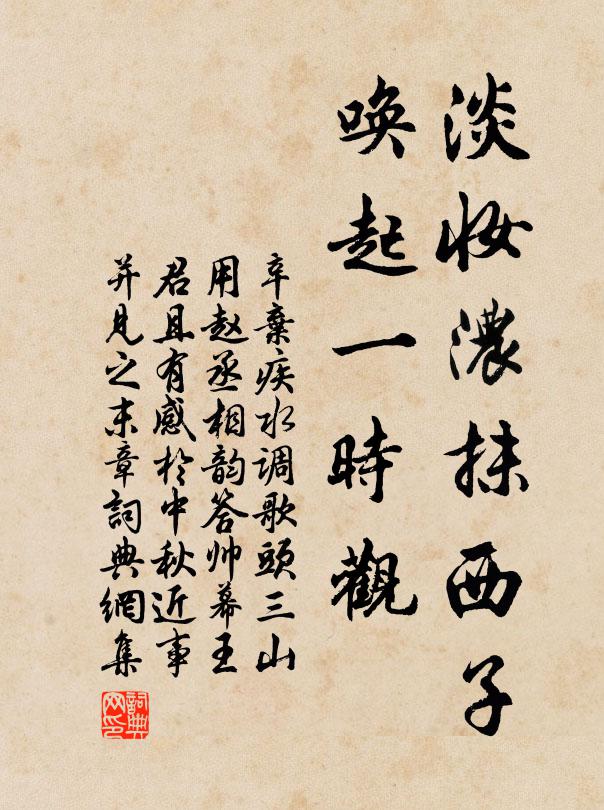 淡妆濃抹西子
唤起一時觀
辛棄疾水调歌頭三山
用赵丞相韵答帅幕王
君且有感於中秋近事
并見之末章詞典網集
詞典
网印